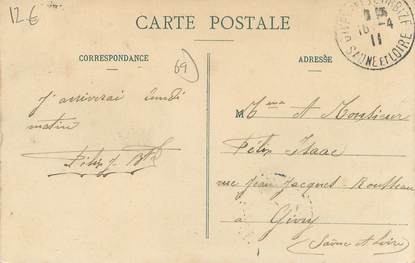 12€
CARTE POSTALE
CORRESPONDANCE
ADRESSE
69
16 -4
11
SAONE ET LOIRE
J'arriverai lundi
matin
M
et Monsieur
Isaac
rue Jean Jacques Rousseau
à Givry
(Saône et Loire)